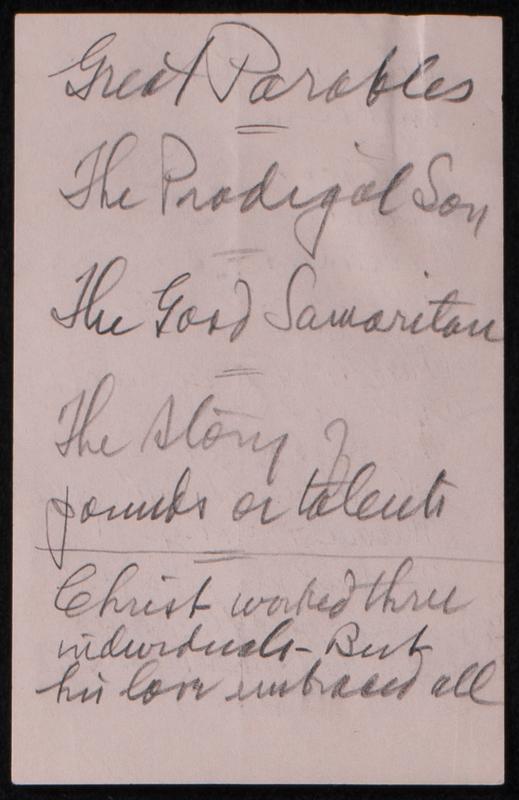 Great Parables
The Prodigal Son
The Good Samaritan
The story of
pounds or talents
Christ worked thru
individuals - But
his love embraced all